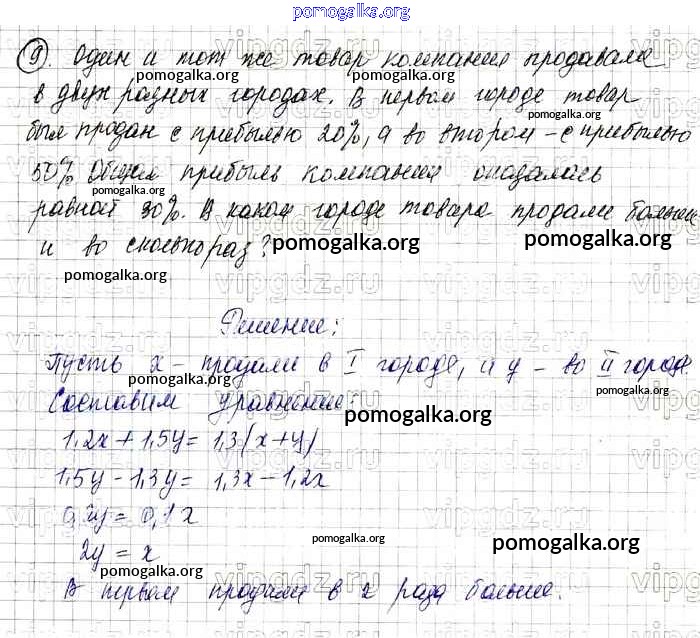 pomogalka.org
9. Один и тот же товар компания продавала
pomogalka.org pomogalka.org
в двух разных городах. В первом городе товар
pomogalka.org
был продан с прибылью 20%, а во втором – с прибылью
50% Общая прибыль компании оказалась
pomogalka.org
равной 30%. В каком городе товара продали больше
и во сколько раз?
pomogalka.org pomogalka.org
pomogalka.org
vipgdz.ru
Решение:
Пусть x – продали в I городе, а y – во II городе
pomogalka.org pomogalka.org
Составим уравнение:
pomogalka.org
1,2x + 1,5y = 1,3(x+y)
1,5y - 1,3y = 1,3x - 1,2x
0,2y = 0,1x
2y = x
pomogalka.org pomogalka.org
pomogalka.org
В первом продали в 2 раза больше.